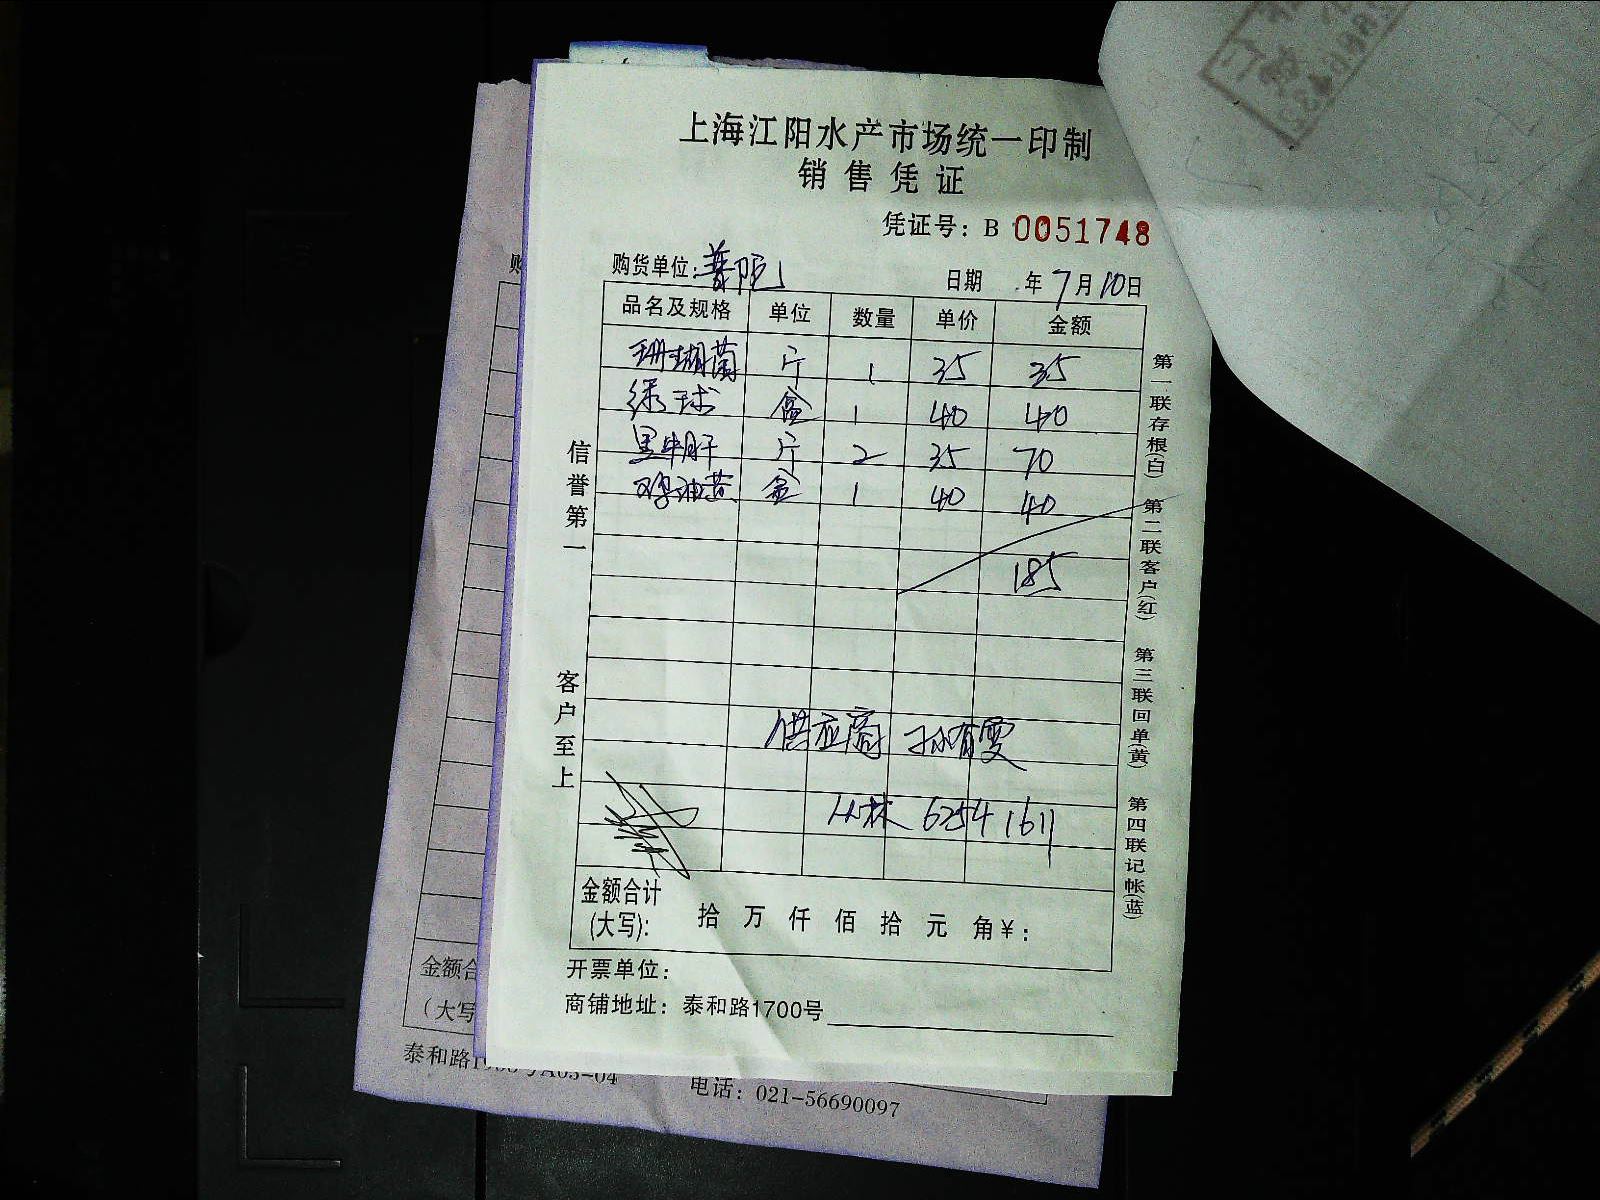 上海江阳水产市场统一印制
销售凭证
凭证号: B 0051748
购货单位: 普陀 日期 年 7 月 10 日
品名及规格 单位 数量 单价 金额
珊瑚菌 斤 1 35 35
绿球 盒 1 40 40
黑牛肝 斤 2 35 70
鸡油黄 盒 1 40 40
185
供应商 孙有雯
丛林 62541611
金额合计
(大写): 拾 万 仟 佰 拾 元 角 ¥:
开票单位:
商铺地址: 泰和路1700号
信誉第一 客户至上
第一联存根(白) 第二联客户(红) 第三联回单(黄) 第四联记帐(蓝)
购
金额合
(大写
泰和路
电话: 021-56690097